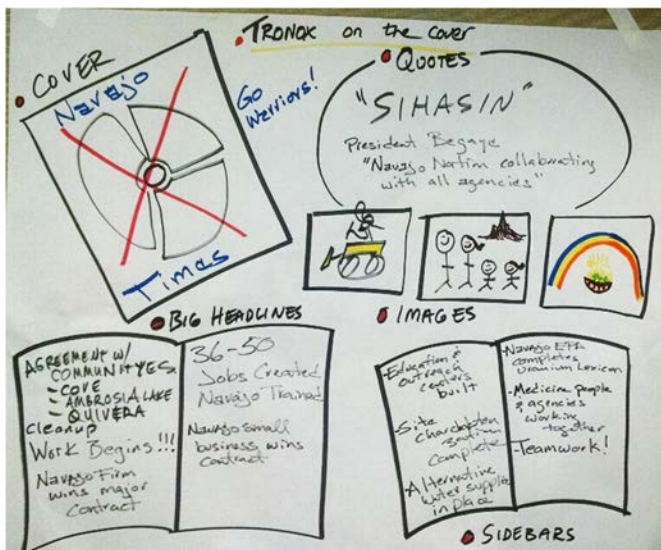 TRONOX on the cover
COVER
Navajo
Times
Go
Warriors!
QUOTES
"SIHASIN"
President Begaye
"Navajo Nation collaborating
with all agencies"
BIG HEADLINES
AGREEMENT W/
COMMUNITYES
- COVE
- AMBROSIA LAKE
- QUIVERA
Cleanup
Work Begins!!!
Navajo Firm
wins major
contract
36-50
Jobs Created
Navajo Trained
Navajo small
business wins
contract
IMAGES
- Education &
outreach
centers
built
- Site
Complete
- Alternative
water supplies
in place
- Navajo EPA
completes
Uranium Lexicon
- Medicine people
& agencies
working
together
- Teamwork!
SIDEBARS